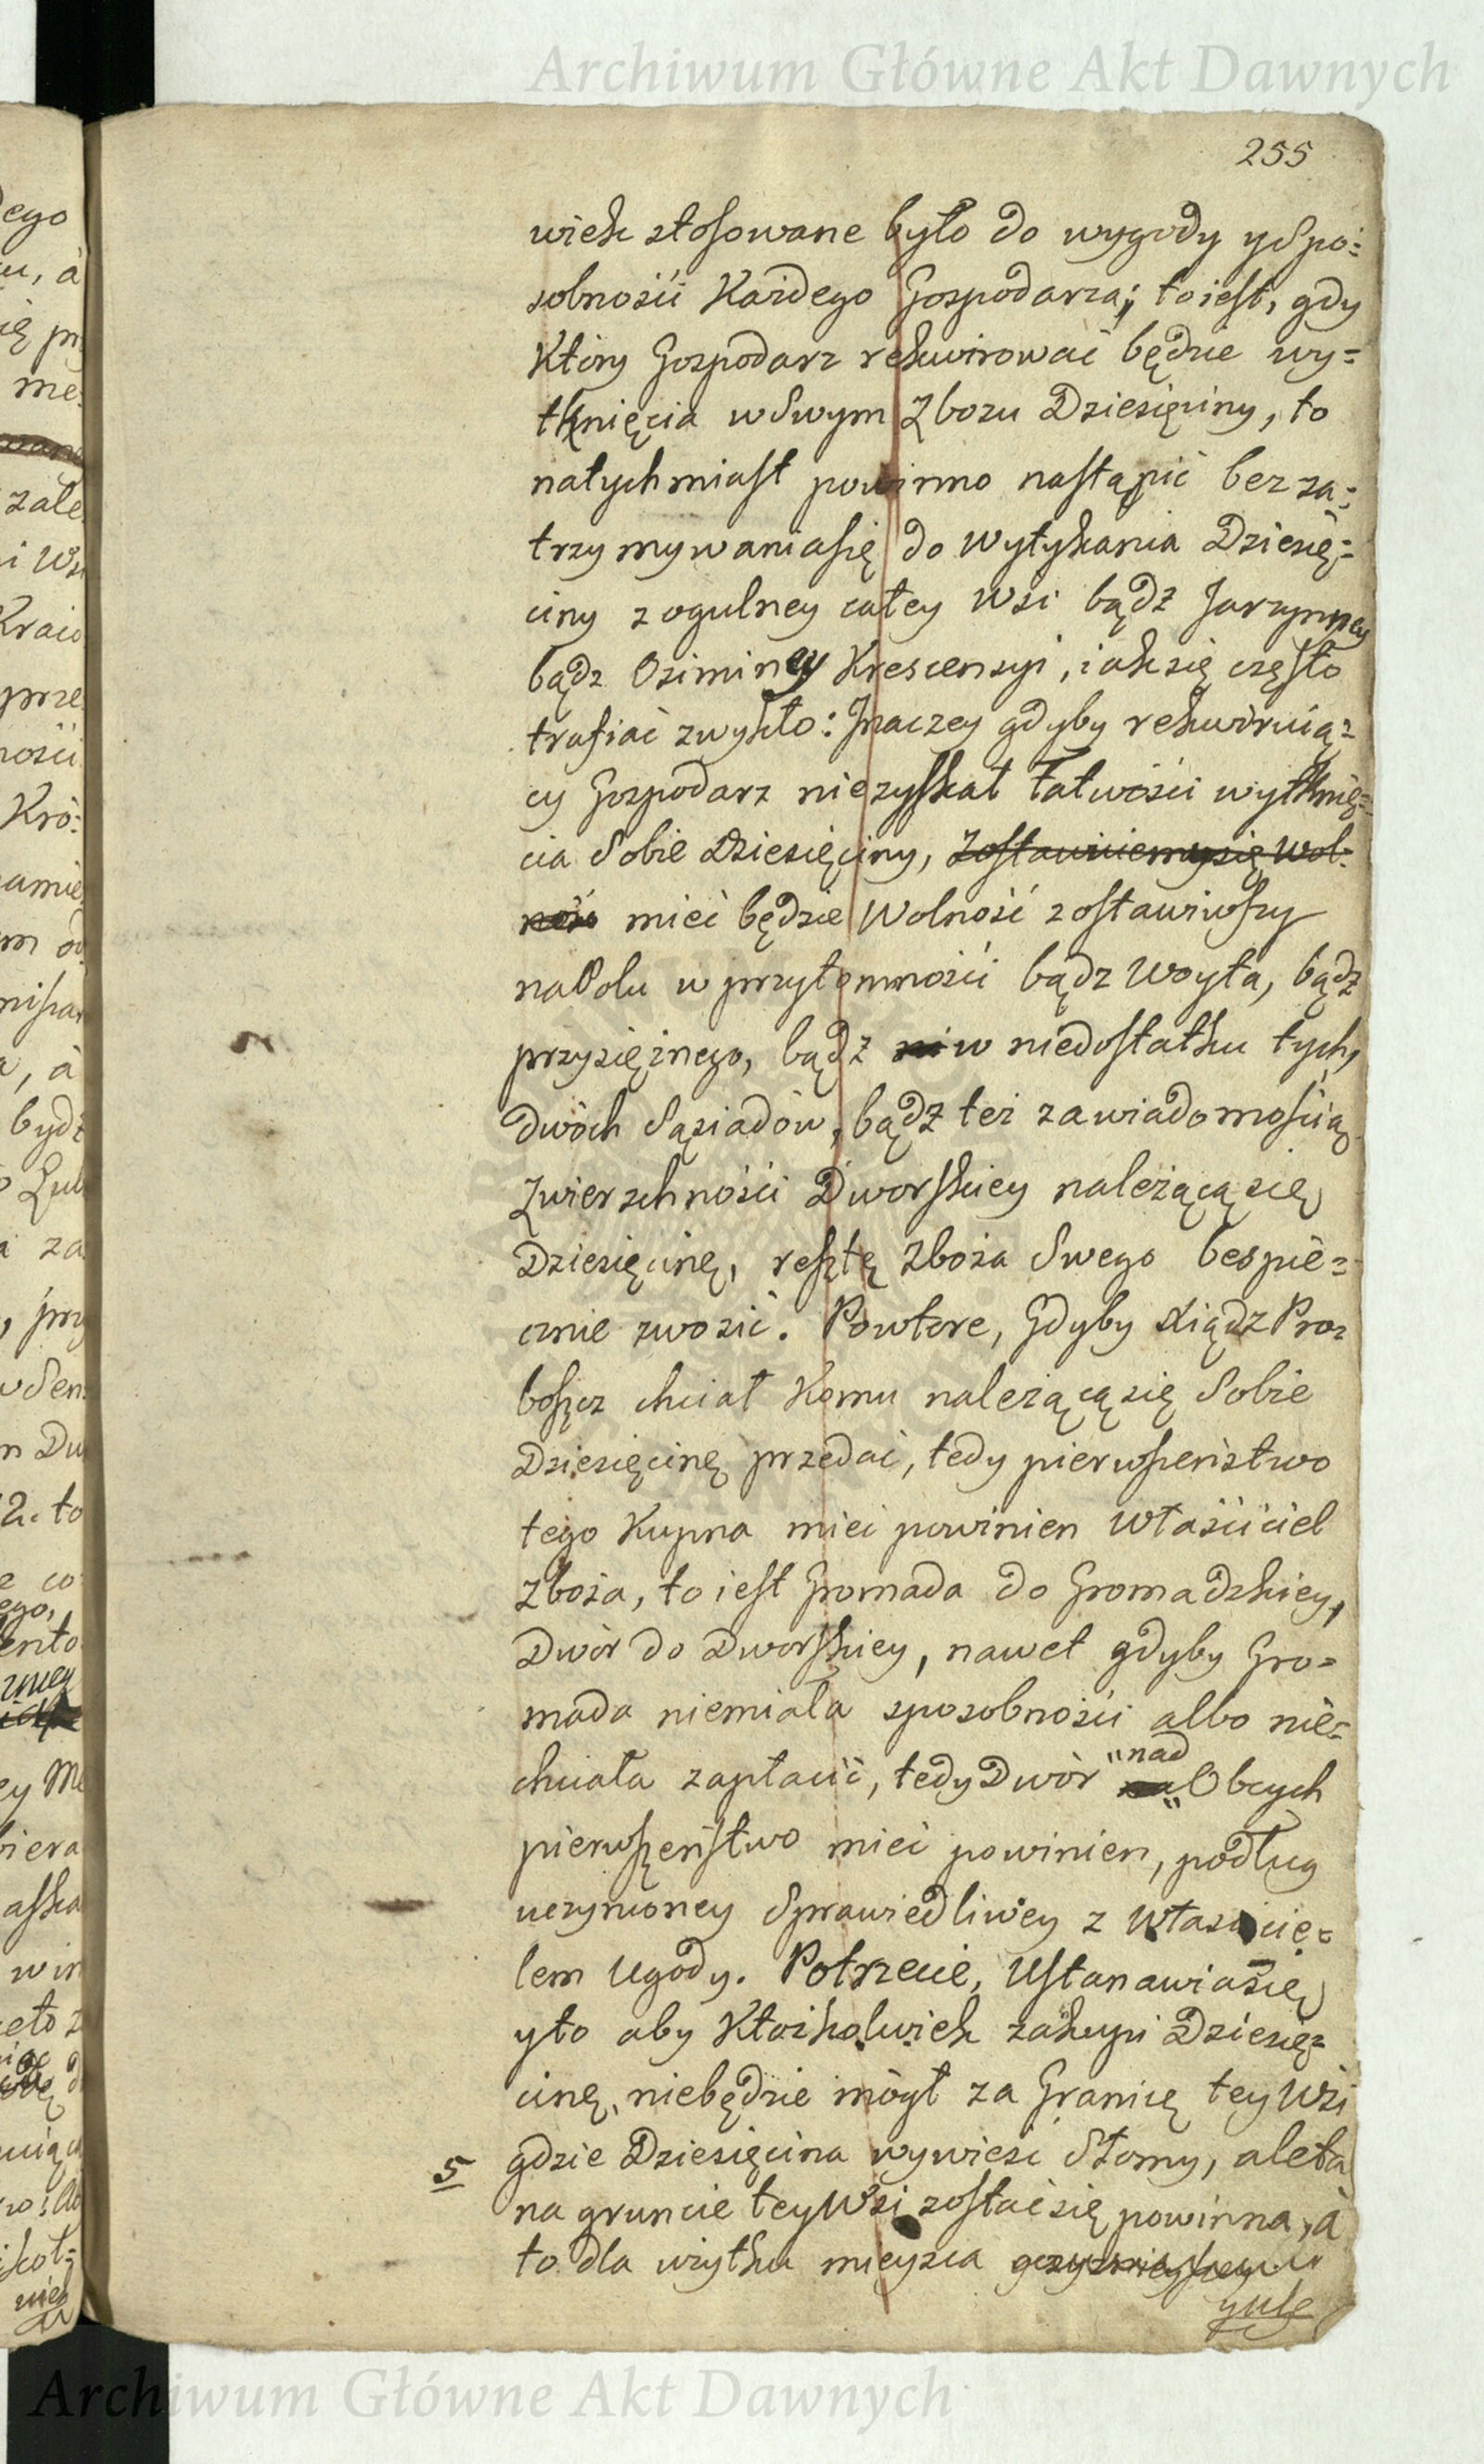 Archiwum Główne Akt Dawnych
255
wiek stosowane było do wygody y Spo=
sobności Każdego Gospodarza; to iest, gdy
Ktòry Gospodarz rekwirować będzie wy=
tknięcia w Swym Zbożu Dziesięciny, to
natychmiast powinno nastąpić bez za=
trzymywania się do wytykania Dziesię=
ciny z ogulney całey Wsi bądz Jarzynney
bądz Oziminey Krescencyi, iak się często
trafiać zwykło: Jnaczey gdyby rekwiruią=
cy Gospodarz niezyskał Łatwości wytknię=
cia Sobie Dziesięciny, zostawuiemy się Wol=
ność mieć będzie Wolność zostawiwszy
na Polu w przytomności bądz Woyta, bądz
przysiężnego, bądz w niedostatku tych,
dwòch Sąsiadòw, bądz też za wiadomością
Zwierzchności Dworskiey należącą się
Dziesięcinę, resztę Zboża Swego bespie=
cznie zwozić. Powtore, Gdyby Xiądz Pro=
boszcz chciał Komu należącą się Sobie
Dziesięcinę przedać, tedy pierwszeństwo
tego Kupna mieć powinien Właściciel
Zboża, to iest Gromada do Gromadzkiey,
Dwòr do Dworskiey, nawet gdyby Gro=
mada niemiała sposobności albo nie=
chciała zapłacić, tedy Dwòr "nad
na" Obcych
pierwszeństwo mieć powinien, podług
uczynioney Sprawiedliwey z Właście=
lem Ugody. Potrzecie, Ustanawia się
y to aby Ktożkolwiek zakupi Dziesię=
cinę, niebędzie mògł za Granicę tey Wsi
5 gdzie Dziesięcina wywieść Słomy, ale ta
na gruncie tey Wsi zostać się powinna, à
to dla użytku mieysca
Archiwum Główne Akt Dawnych